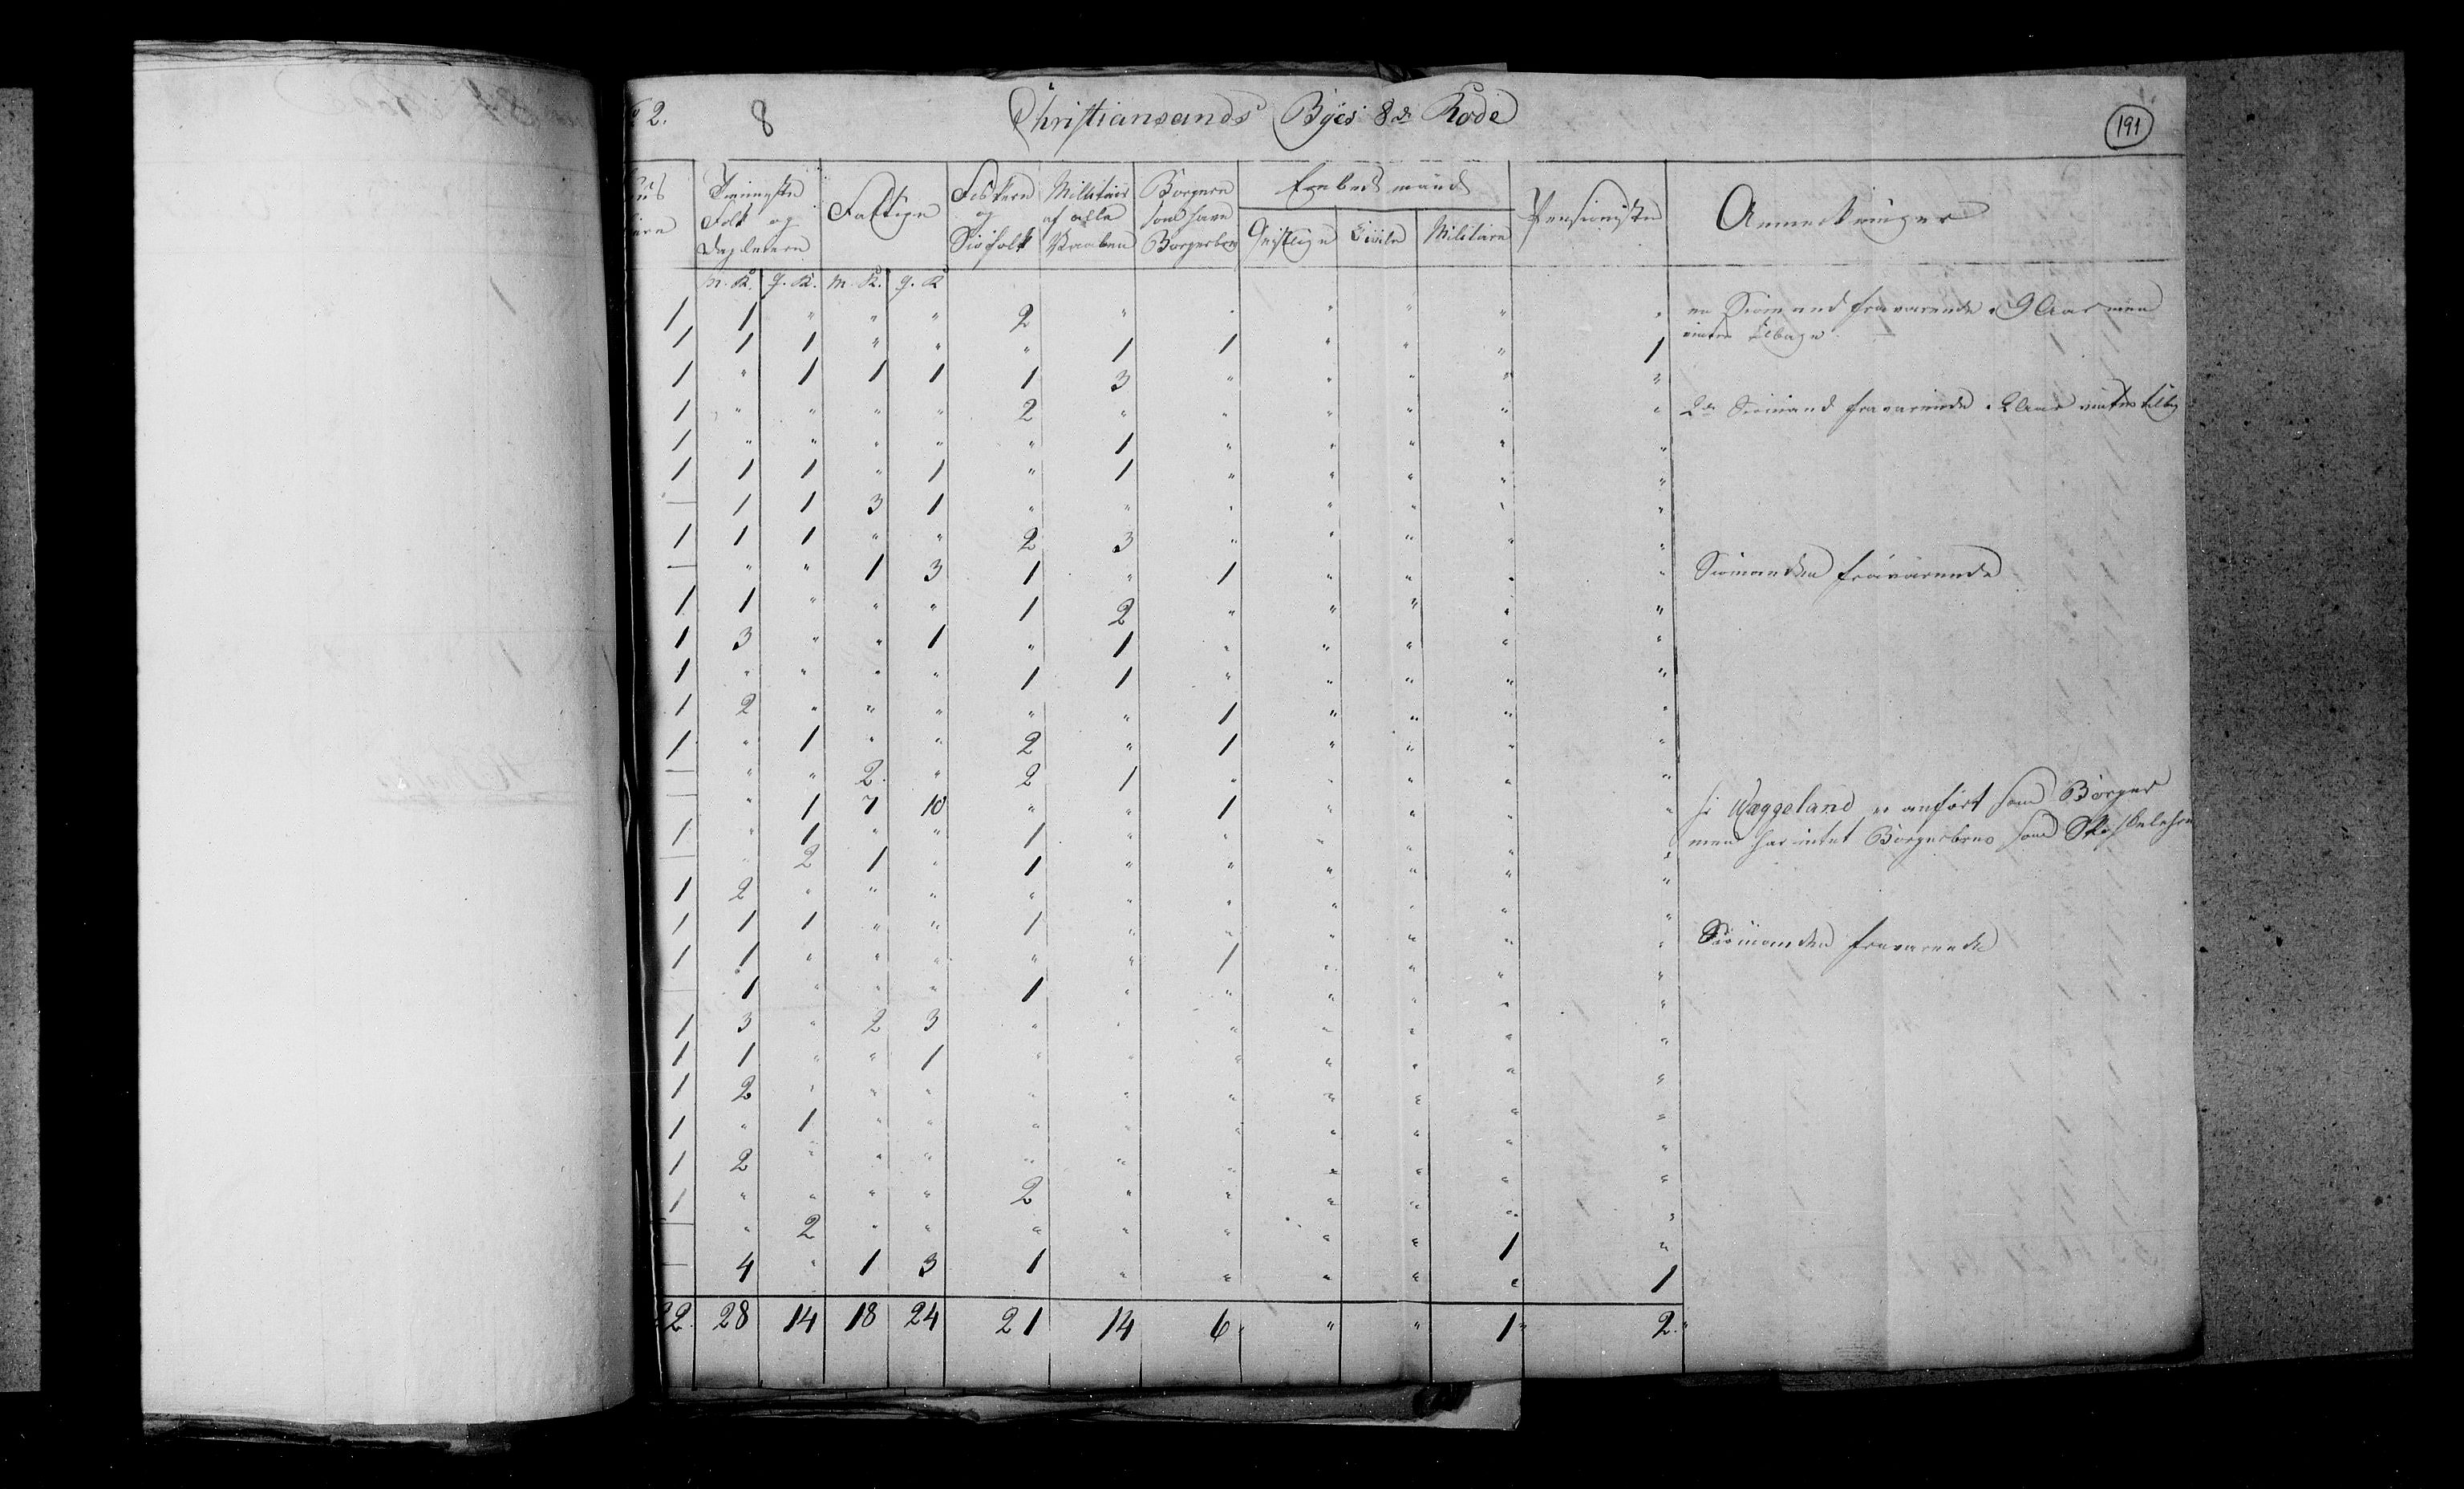 2. 8 Christiansands Byes 8de Rode 191
Tieneste Folk og Dagleiere | Fattige | Fiskere og Siøfolk | Militair af alle Vaaben | Borgere som have Borgerbrev | Embedsmænd | Pensionister | Anmerkninger
Geistlige | Civile | Militaire
m. K. | q. K. | m. K. | q. K
1 1 " " " 2 " " " " " " en Siømand fraværende i 9 Aar men
1 1 1 " " " 1 1 " " " 1 tilbage
1 " 1 1 1 1 3 " " " " "
1 " " " " 2 " " " " " " 2de Siømænd fraværende
1 " " " " " 1 " " " " "
1 1 1 " 1 " 1 " " " " "
— 1 1 3 1 " " " " " " "
1 1 1 " " 2 3 " " " " "
— " " 1 3 1 " 1 " " " " Siømanden fraværende
1 1 " " " 1 2 " " " " "
1 3 " " 1 " 1 " " " " "
1 " " " " 1 1 " " " " "
1 2 " " " " " 1 " " " "
1 " 1 " " 2 " 1 " " " "
— " " 2 " 2 1 " " " " "
— " 1 7 10 " " 1 " " " " Hr Wæggeland er anført som Borger
1 " 1 " " 1 " " " " " " men har intet Borgerbrev som
— " 2 1 " 1 " " " " " "
1 2 " " " " " " " " " "
1 1 1 " " 1 " " " " " " Siømanden fraværende
1 1 " " " " " 1 " " " "
— 1 " " " 1 " " " " " "
1 3 " 2 3 " " " " " " "
1 1 " " 1 " " " " " " "
1 2 " " " " " " " " " "
1 " 1 " " " " " " " " "
1 2 " " " " " " " " " "
1 " " " " 2 " " " " " "
— " 2 " " " " " " " 1 "
— 4 " 1 3 1 " " " " " 1
22 28 14 18 24 21 14 6 " " 1 2